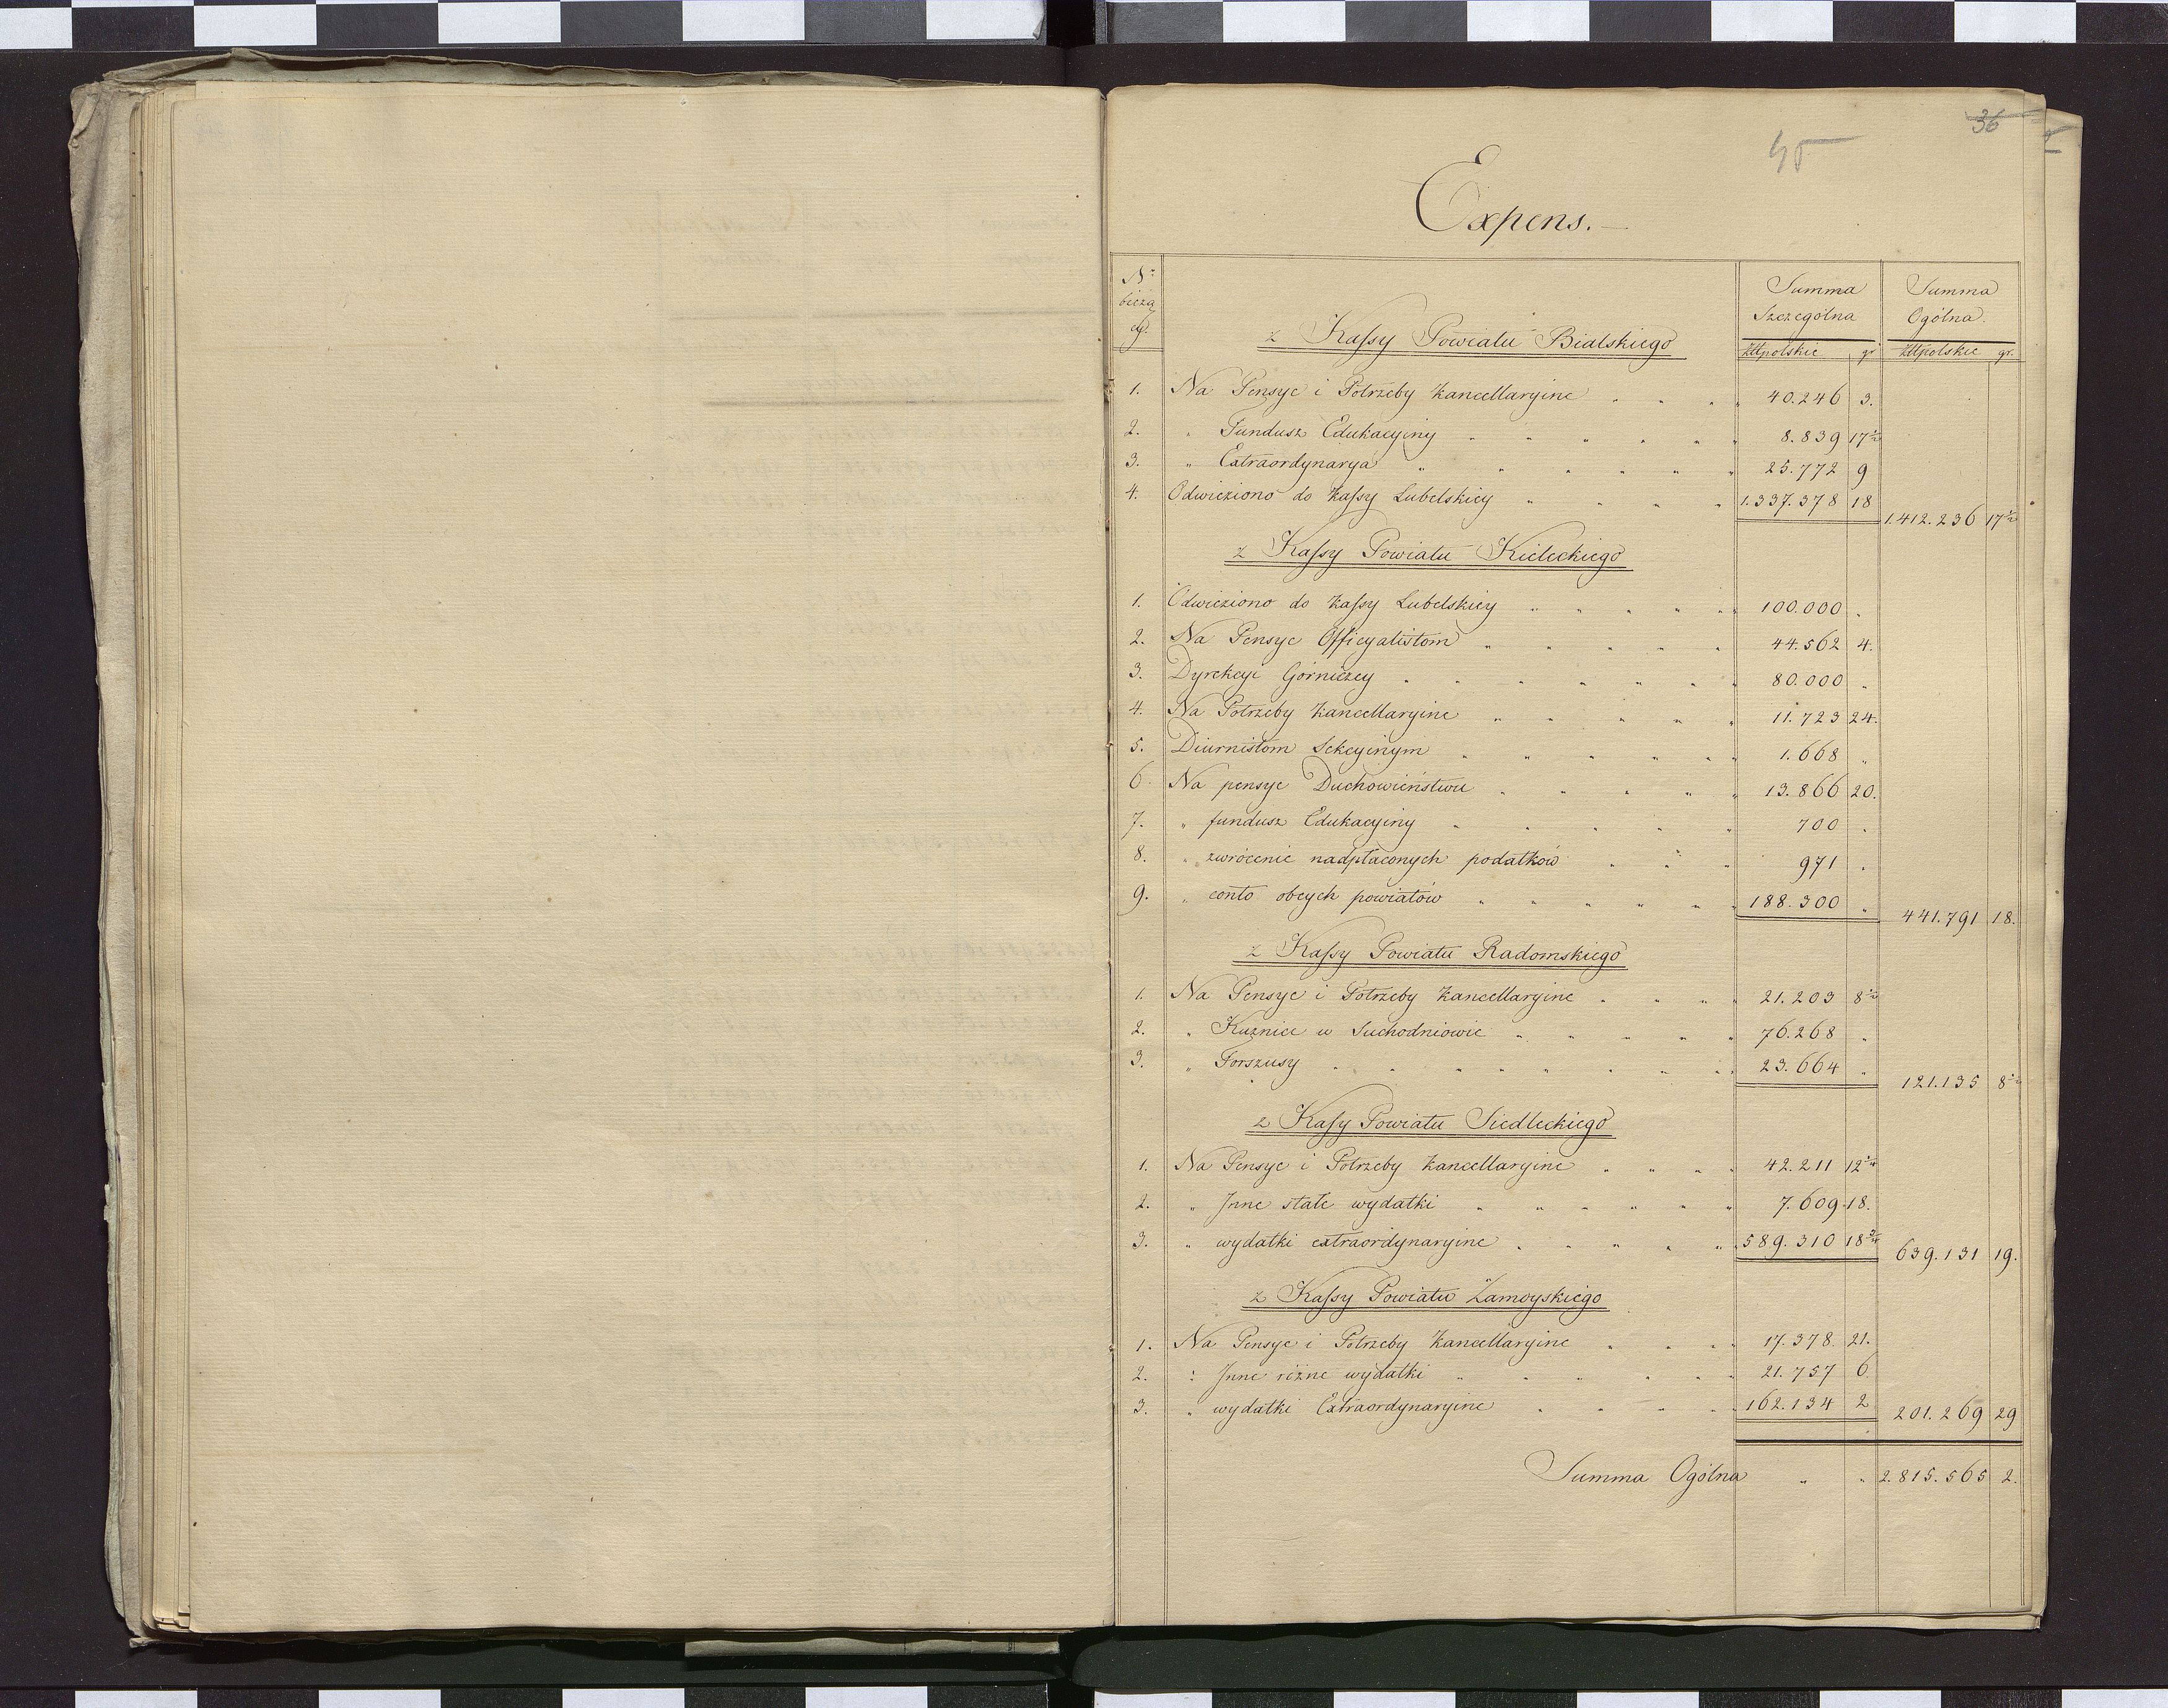 36
45
Expens.
Nr bieżą cy. Summa Szczególna Summa Ogólna.
z Kassy Powiatu Bialskiego Złłpolskie gr Złłpolskie gr.
1. Na Pensye i Potrzeby Kancellaryine 40.246 3.
2. " Fundusz Edukacyiny 8.839 17½
3. " Extraordynarya 25.772 9
4. Odwieziono do Kassy Lubelskiey 1.337.378 18
1.412.236 17½
z Kassy Powiatu Kieleckiego
1. Odwieziono do Kassy Lubelskiey 100.000 "
2. Na Pensye Officyalistom 44.562 4.
3. Dyrekcyi Górniczey 80.000 "
4. Na Potrzeby Kancellaryine 11.723 24.
5. Diurnistom Sekcyinym 1.668 "
6. Na pensye Duchowieństwu 13.866 20.
7. " fundusz Edukacyiny 700 "
8. " zwrócenie nadpłaconych podatków 971 "
9. " conto obcych powiatów 188.300 " 441.791 18.
z Kassy Powiatu Radomskiego
1. Na Pensye i Potrzeby Kancellaryine 21.203 8½
2. " Kuźnice w Suchodniowie 76.268 "
3. " Forszusy 23.664 "
121.135 8½
z Kassy Powiatu Siedleckiego
1. Na Pensye i Potrzeby Kancellaryine 42.211 12¼
2. " Jnne stałe wydatki 7.609 18.
3. " wydatki extraordynaryine 589.310 18¾ 639.131 19.
z Kassy Powiatu Zamoyskiego
1. Na Pensye i Potrzeby Kancellaryine 17.378 21.
2. " Jnne różne wydatki 21.757 6
3. " wydatki Extraordynaryine 162.134 2 201.269 29
Summa Ogólna " " 2.815.565 2.